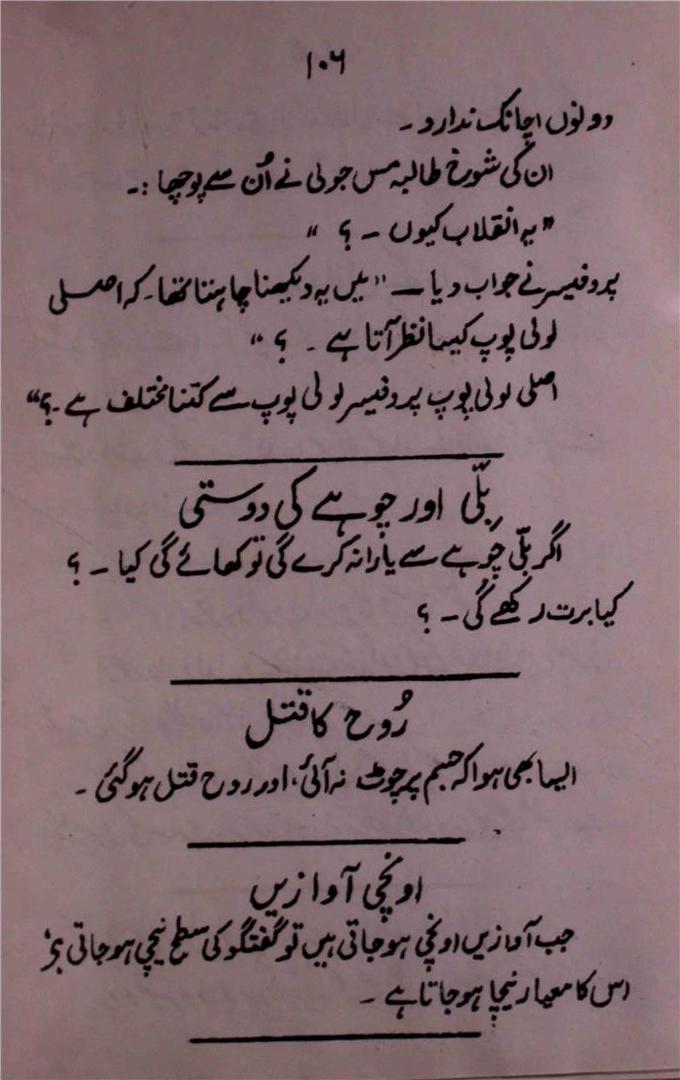 ۱۰۶
دونوں اچانک ندارد۔
ان کی شوخ طالبہ مس جولی نے اُن سے پوچھا :۔
”یہ انقلاب کیوں ۔ ؟ “
پروفیسر نے جواب دیا — ”میں یہ دیکھنا چاہتا تھا۔ کہ اصلی
لولی پوپ کیسا نظر آتا ہے ۔ ؟ “
اصلی لولی پوپ پروفیسر لولی پوپ سے کتنا مختلف ہے ۔؟“
بِلّی اور چوہے کی دوستی
اگر بلّی چوہے سے یارانہ کرے گی تو کھائے گی کیا ۔ ؟
کیا برت رکھے گی ۔ ؟
رُوح کا قتل
ایسا بھی ہوا کہ جسم پر چوٹ نہ آئی، اور روح قتل ہو گئی ۔
اونچی آوازیں
جب آوازیں اونچی ہو جاتی ہیں تو گفتگو کی سطح نیچی ہو جاتی ہے،
اس کا معیار نیچا ہو جاتا ہے ۔